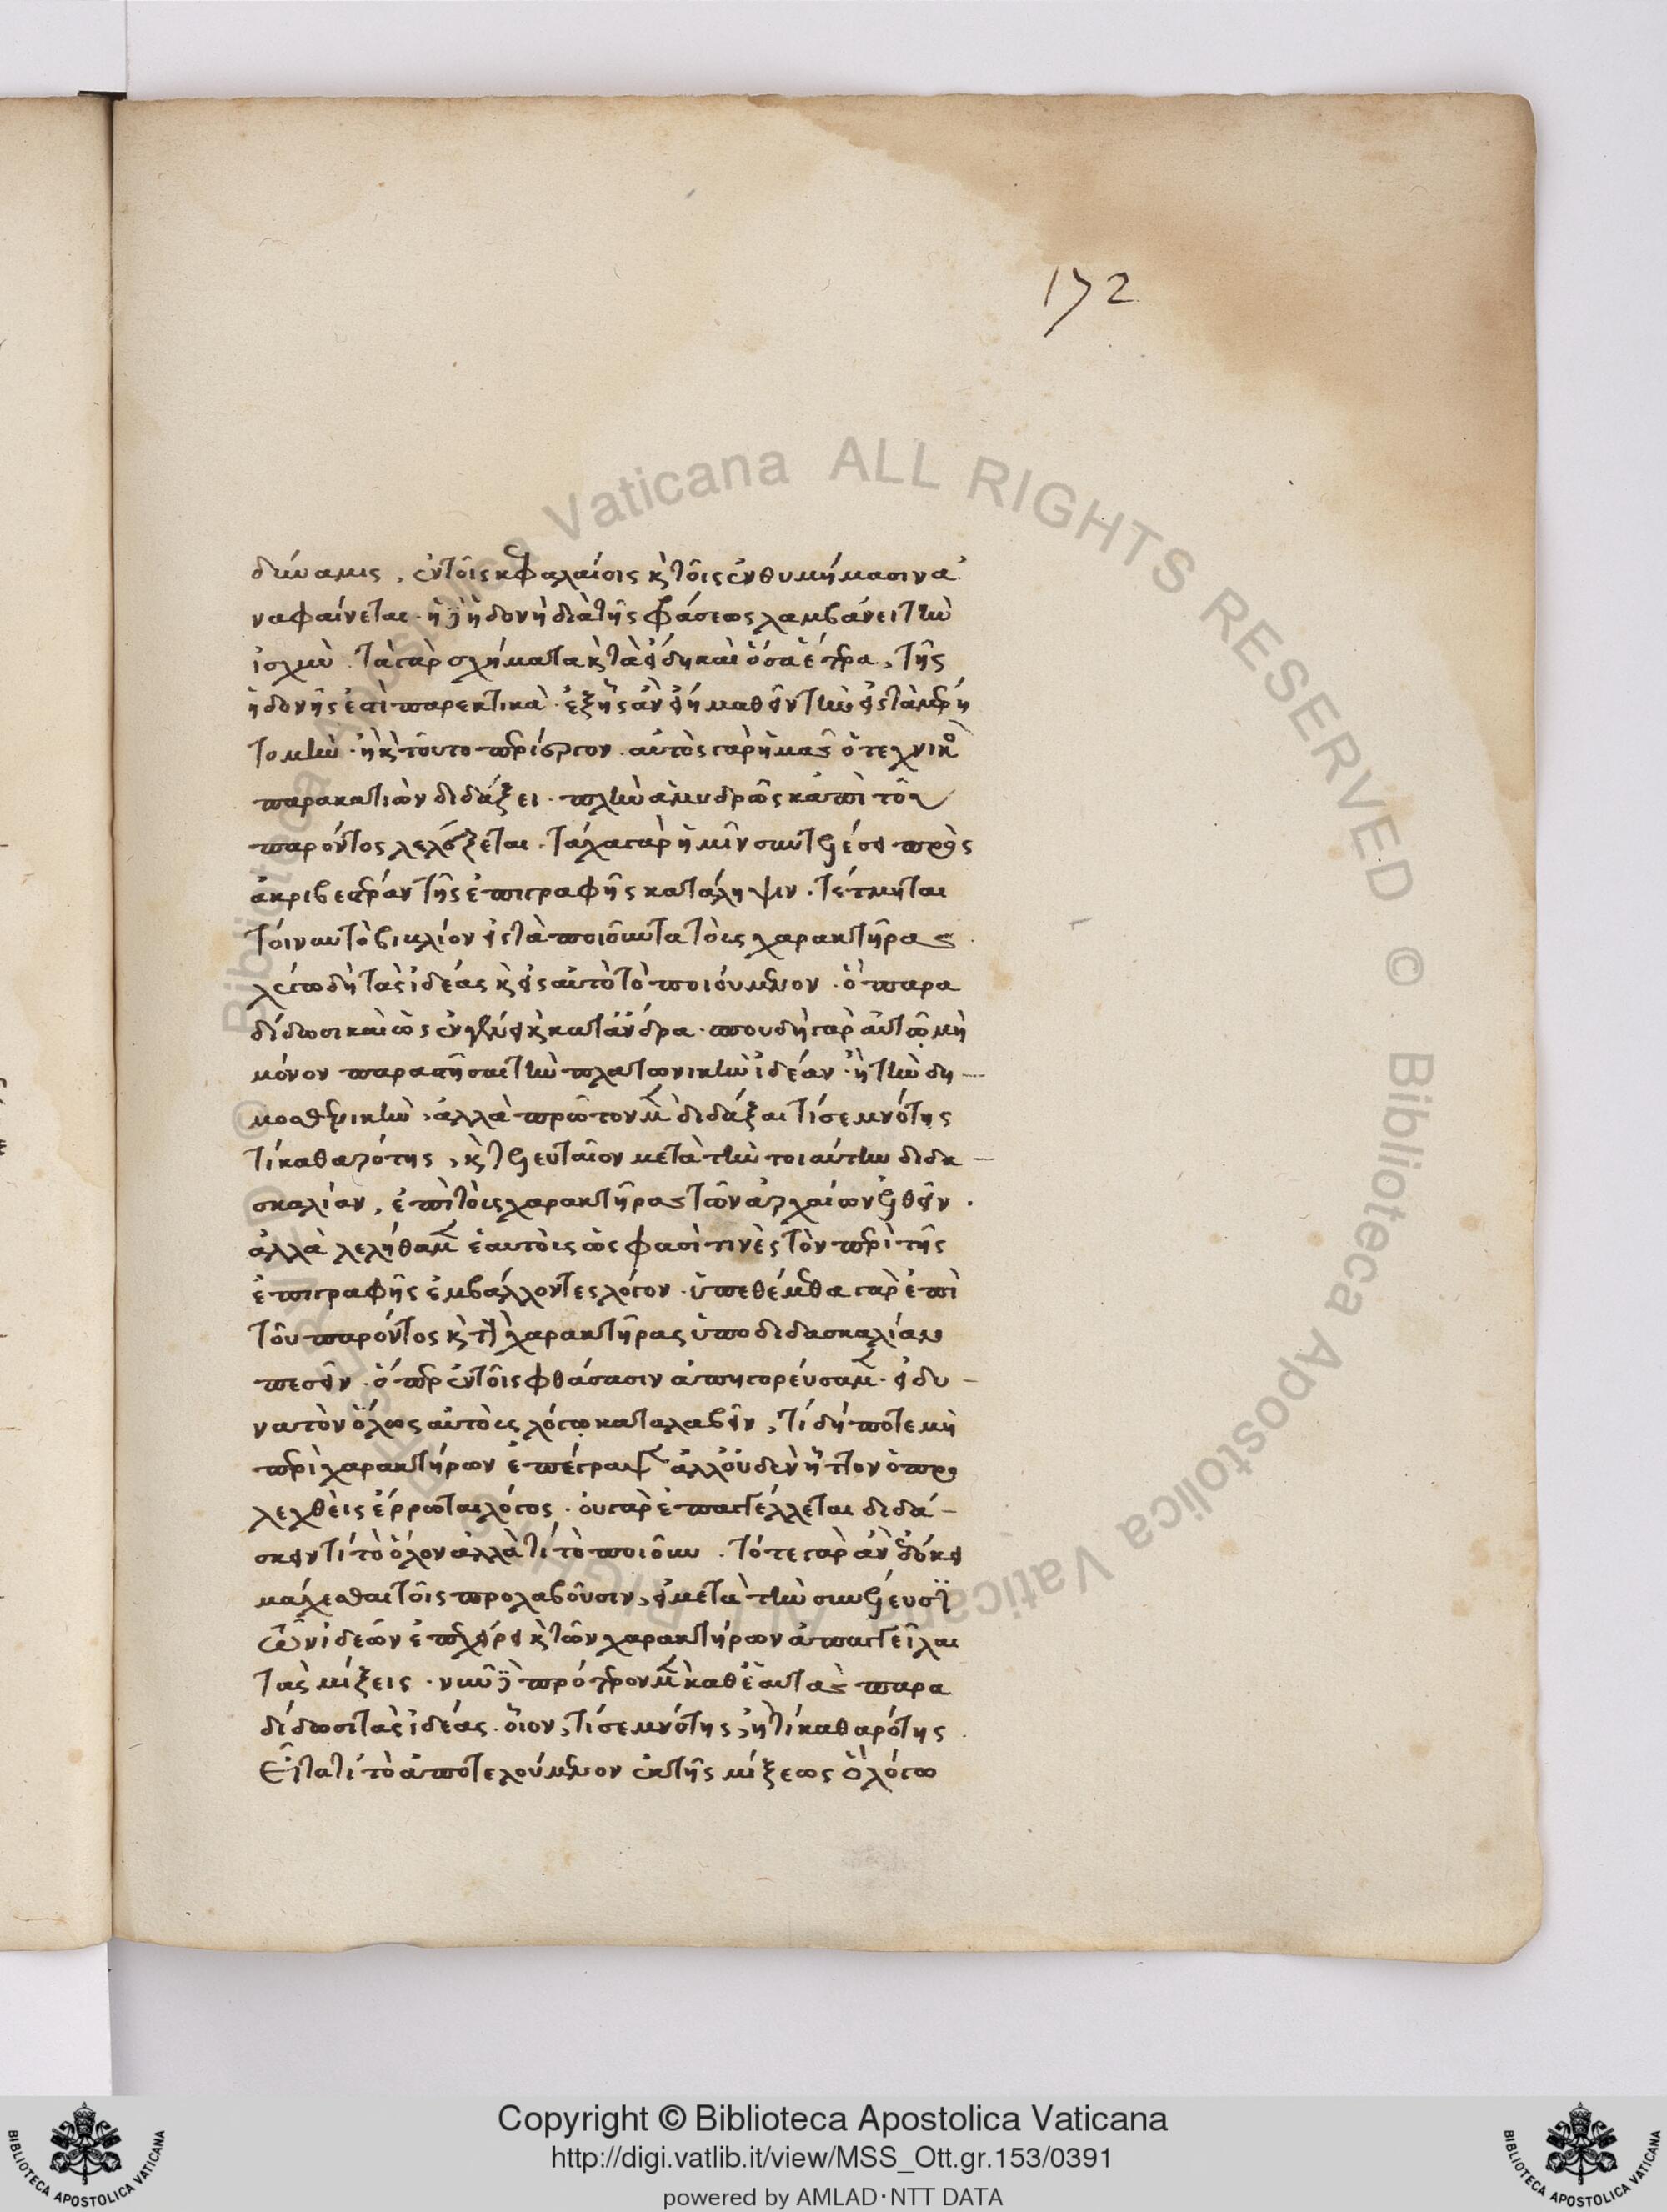 172
δύναμις, ἐν τοῖς κεφαλαίοις καὶ τοῖς ἐνθυμήμασιν ἀ
ναφαίνεται· ἡ δὲ ἡδονὴ διὰ τῆς φράσεως λαμβάνει τὴν
ἰσχὺν. τὰ γὰρ σχήματα καὶ τὰ εἴδη καὶ ὅσα ἕτερα, τῆς
ἡδονῆς ἐστὶ παρεκτικὰ· ἑξῆς ἂν εἴη μαθεῖν τὴν εἰς τὰ μέρη
τομὴν· ἢ καὶ τοῦτο περίεργον. αὐτὸς γὰρ ἡμᾶς ὁ τεχνικὸς
παρακατιὼν διδάξει· πλὴν ἀμυδρῶς κἀπὶ τοῦ
παρόντος λελέξεται. τάχα γὰρ ἡμῖν συντελέσει πρὸς
ἀκριβεστέραν τῆς ἐπιγραφῆς κατάληψιν. τέτμηται
τοίνυν τὸ βιβλίον εἰς τὰ ποιοῦντα τοὺς χαρακτῆρας
λέγω δὴ τὰς ἰδέας καὶ εἰς αὐτὸ τὸ ποιούμενον· ὃ παρα
δίδωσι καὶ ὡς ἐν γένει καὶ κατ' ἄνδρα· σπουδὴ γὰρ αὐτῷ μὴ
μόνον παραστῆσαι τὴν πλατωνικὴν ἰδέαν ἢ τὴν δη
μοσθενικὴν, ἀλλὰ πρῶτον μὲν διδάξαι τί σεμνότης
τί καθαρότης, καὶ τελευταῖον μετὰ τὴν τοιαύτην διδα
σκαλίαν, ἐπὶ τοὺς χαρακτῆρας τῶν ἀρχαίων ἐλθεῖν.
ἀλλὰ λελήθαμεν ἑαυτοὺς ὥς φασί τινες τὸν περὶ τῆς
ἐπιγραφῆς ἐμβάλλοντες λόγον· ὑπεθέμεθα γὰρ ἐπὶ
τοῦ παρόντος καὶ τοὺς χαρακτῆρας ὑπὸ διδασκαλίαν
πεσεῖν· ὅπερ ἐν τοῖς φθάσασιν ἀπηγορεύσαμεν· εἰ δυ
νατὸν ὅλως αὐτοὺς λόγῳ καταλαβεῖν, τί δήποτε μὴ
περὶ χαρακτήρων ἐπέγραψεν ἀλλ' οὐδὲν ἧττον ὁ προ
λεχθεὶς ἔρρωται λόγος· οὐ γὰρ ἐπαγγέλλεται διδά
σκειν τί τὸ ὅλον ἀλλὰ τί τὸ ποιοῦν. τότε γὰρ ἂν ἐδόκει
μάχεσθαι τοῖς προλαβοῦσιν, εἰ μετὰ τὴν συνέλευσιν
τῶν ἰδεῶν ἐπεχείρει καὶ τῶν χαρακτήρων ἀπαγγεῖλαι
τὰς μίξεις· νῦν δὲ πρότερον μὲν καθ' ἑαυτὰς παρα
δίδωσι τὰς ἰδέας· οἷον, τί σεμνότης, ἢ τί καθαρότης
εἶτα τί τὸ ἀποτελούμενον ἐκ τῆς μίξεως ὃ λόγῳ
Copyright © Biblioteca Apostolica Vaticana
http://digi.vatlib.it/view/MSS_Ott.gr.153/0391
powered by AMLAD·NTT DATA